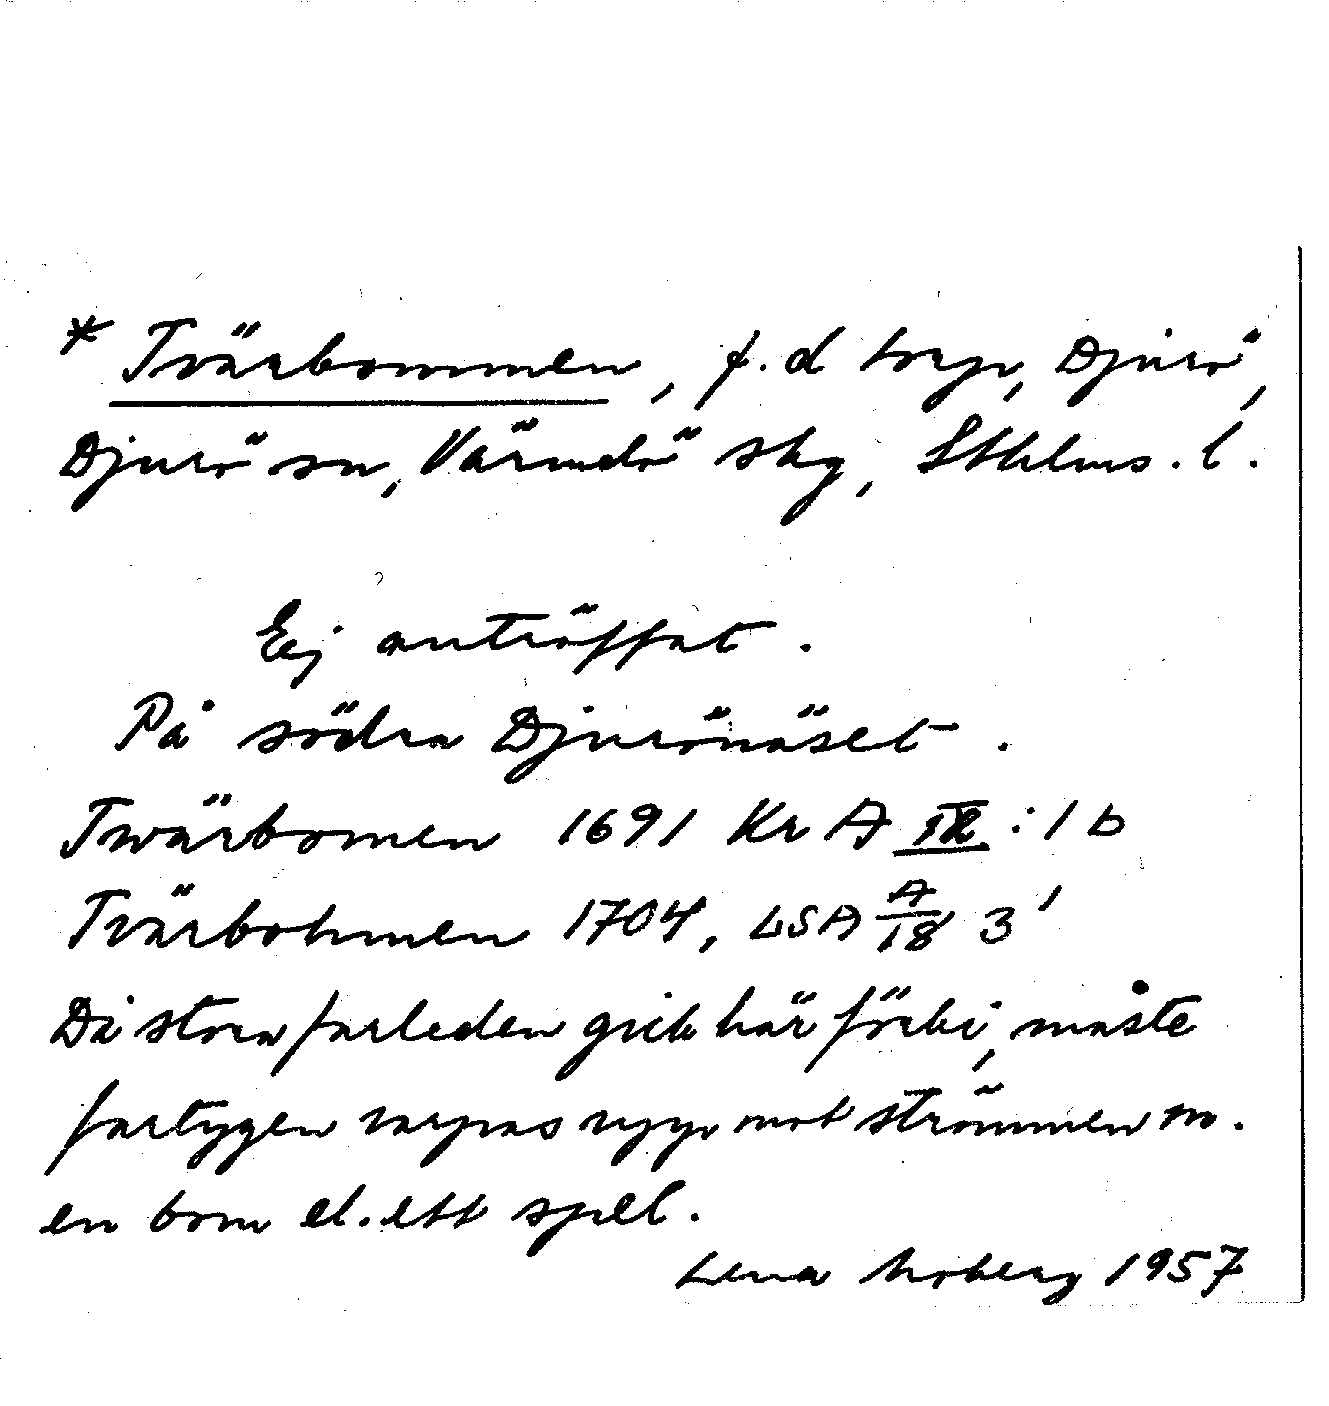 * Tvärbommen, f.d torp, Djurö,
Djurö sn, Värmdö skg, Sthlms. l.
Ej anträffat.
På södra Djurönäset.
Twärbomen 1691 Kr A IX:1 b
Tvärbohmen 1704, LSA A/18 3'
Då stora farleden gick här förbi, måste
fartygen varpas upp mot strömmen m.
en bom el. ett spel.
Lena Moberg 1957